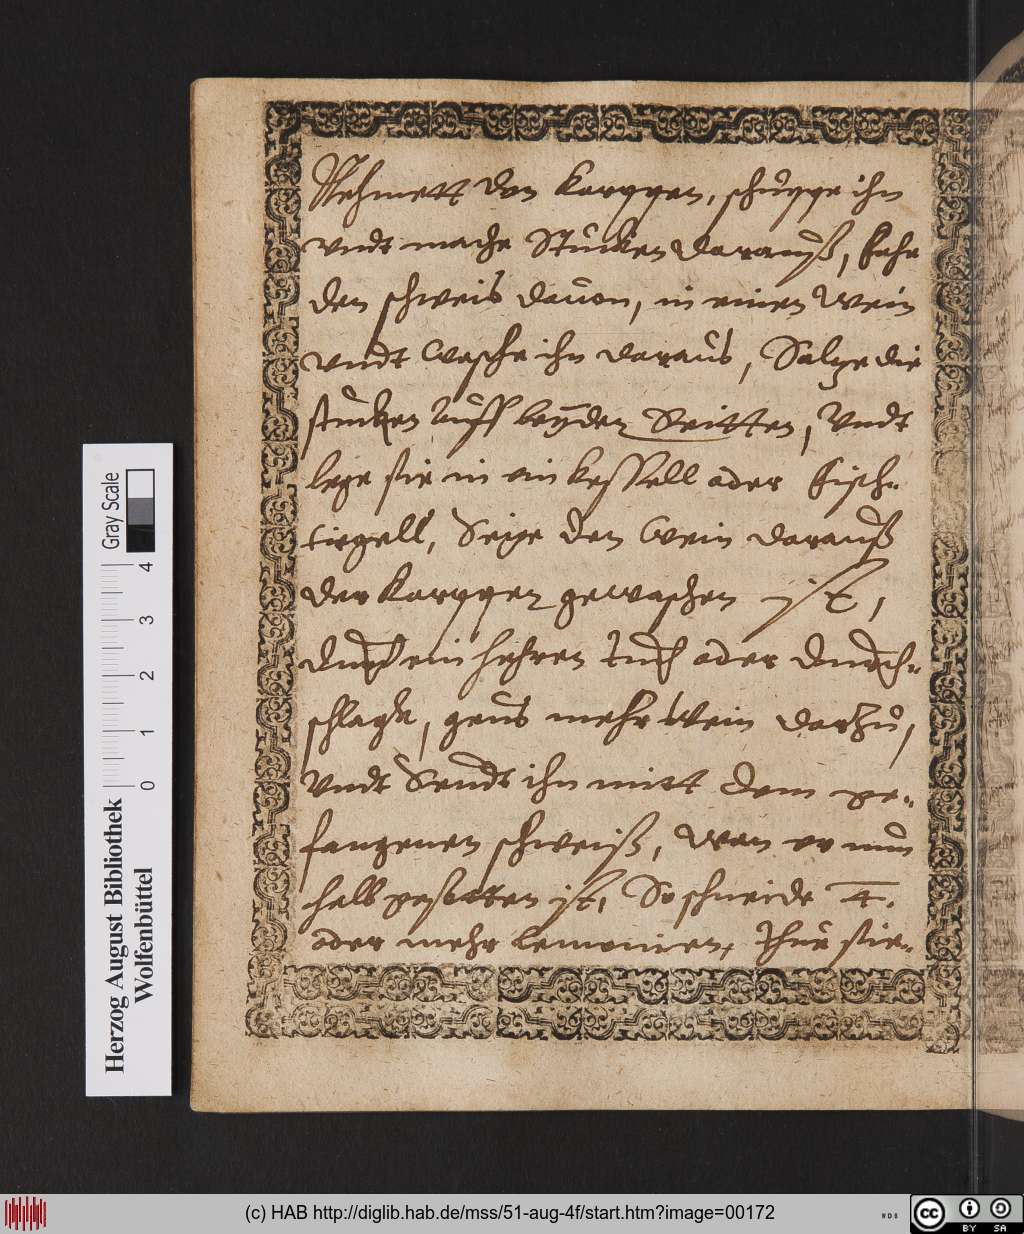 Nehmett den Karppen, schüppe ihn
vndt mache Stucken darauß, fahe
den schweis dauon, in einen Wein
vndt wasche ihn daraus, Saltze die
stucken auff beyden Seitten, Vndt
lege sie in ein kessell oder fisch-
tiegell, Seige den Wein darauß
der Karppen gewaschen ist,
durch ein hehren tuch oder durch-
schlagk, geus mehr Wein darzu,
Vndt Seudt ihn mitt dem ge-
fangenen schweiß, wen er nun
halb gesotten ist, So schneide 4.
oder mehr lemonien, thue sie-
Gray Scale
0 1 2 3 4
Herzog August Bibliothek
Wolfenbüttel
(c) HAB http://diglib.hab.de/mss/51-aug-4f/start.htm?image=00172
WDB
cc BY SA